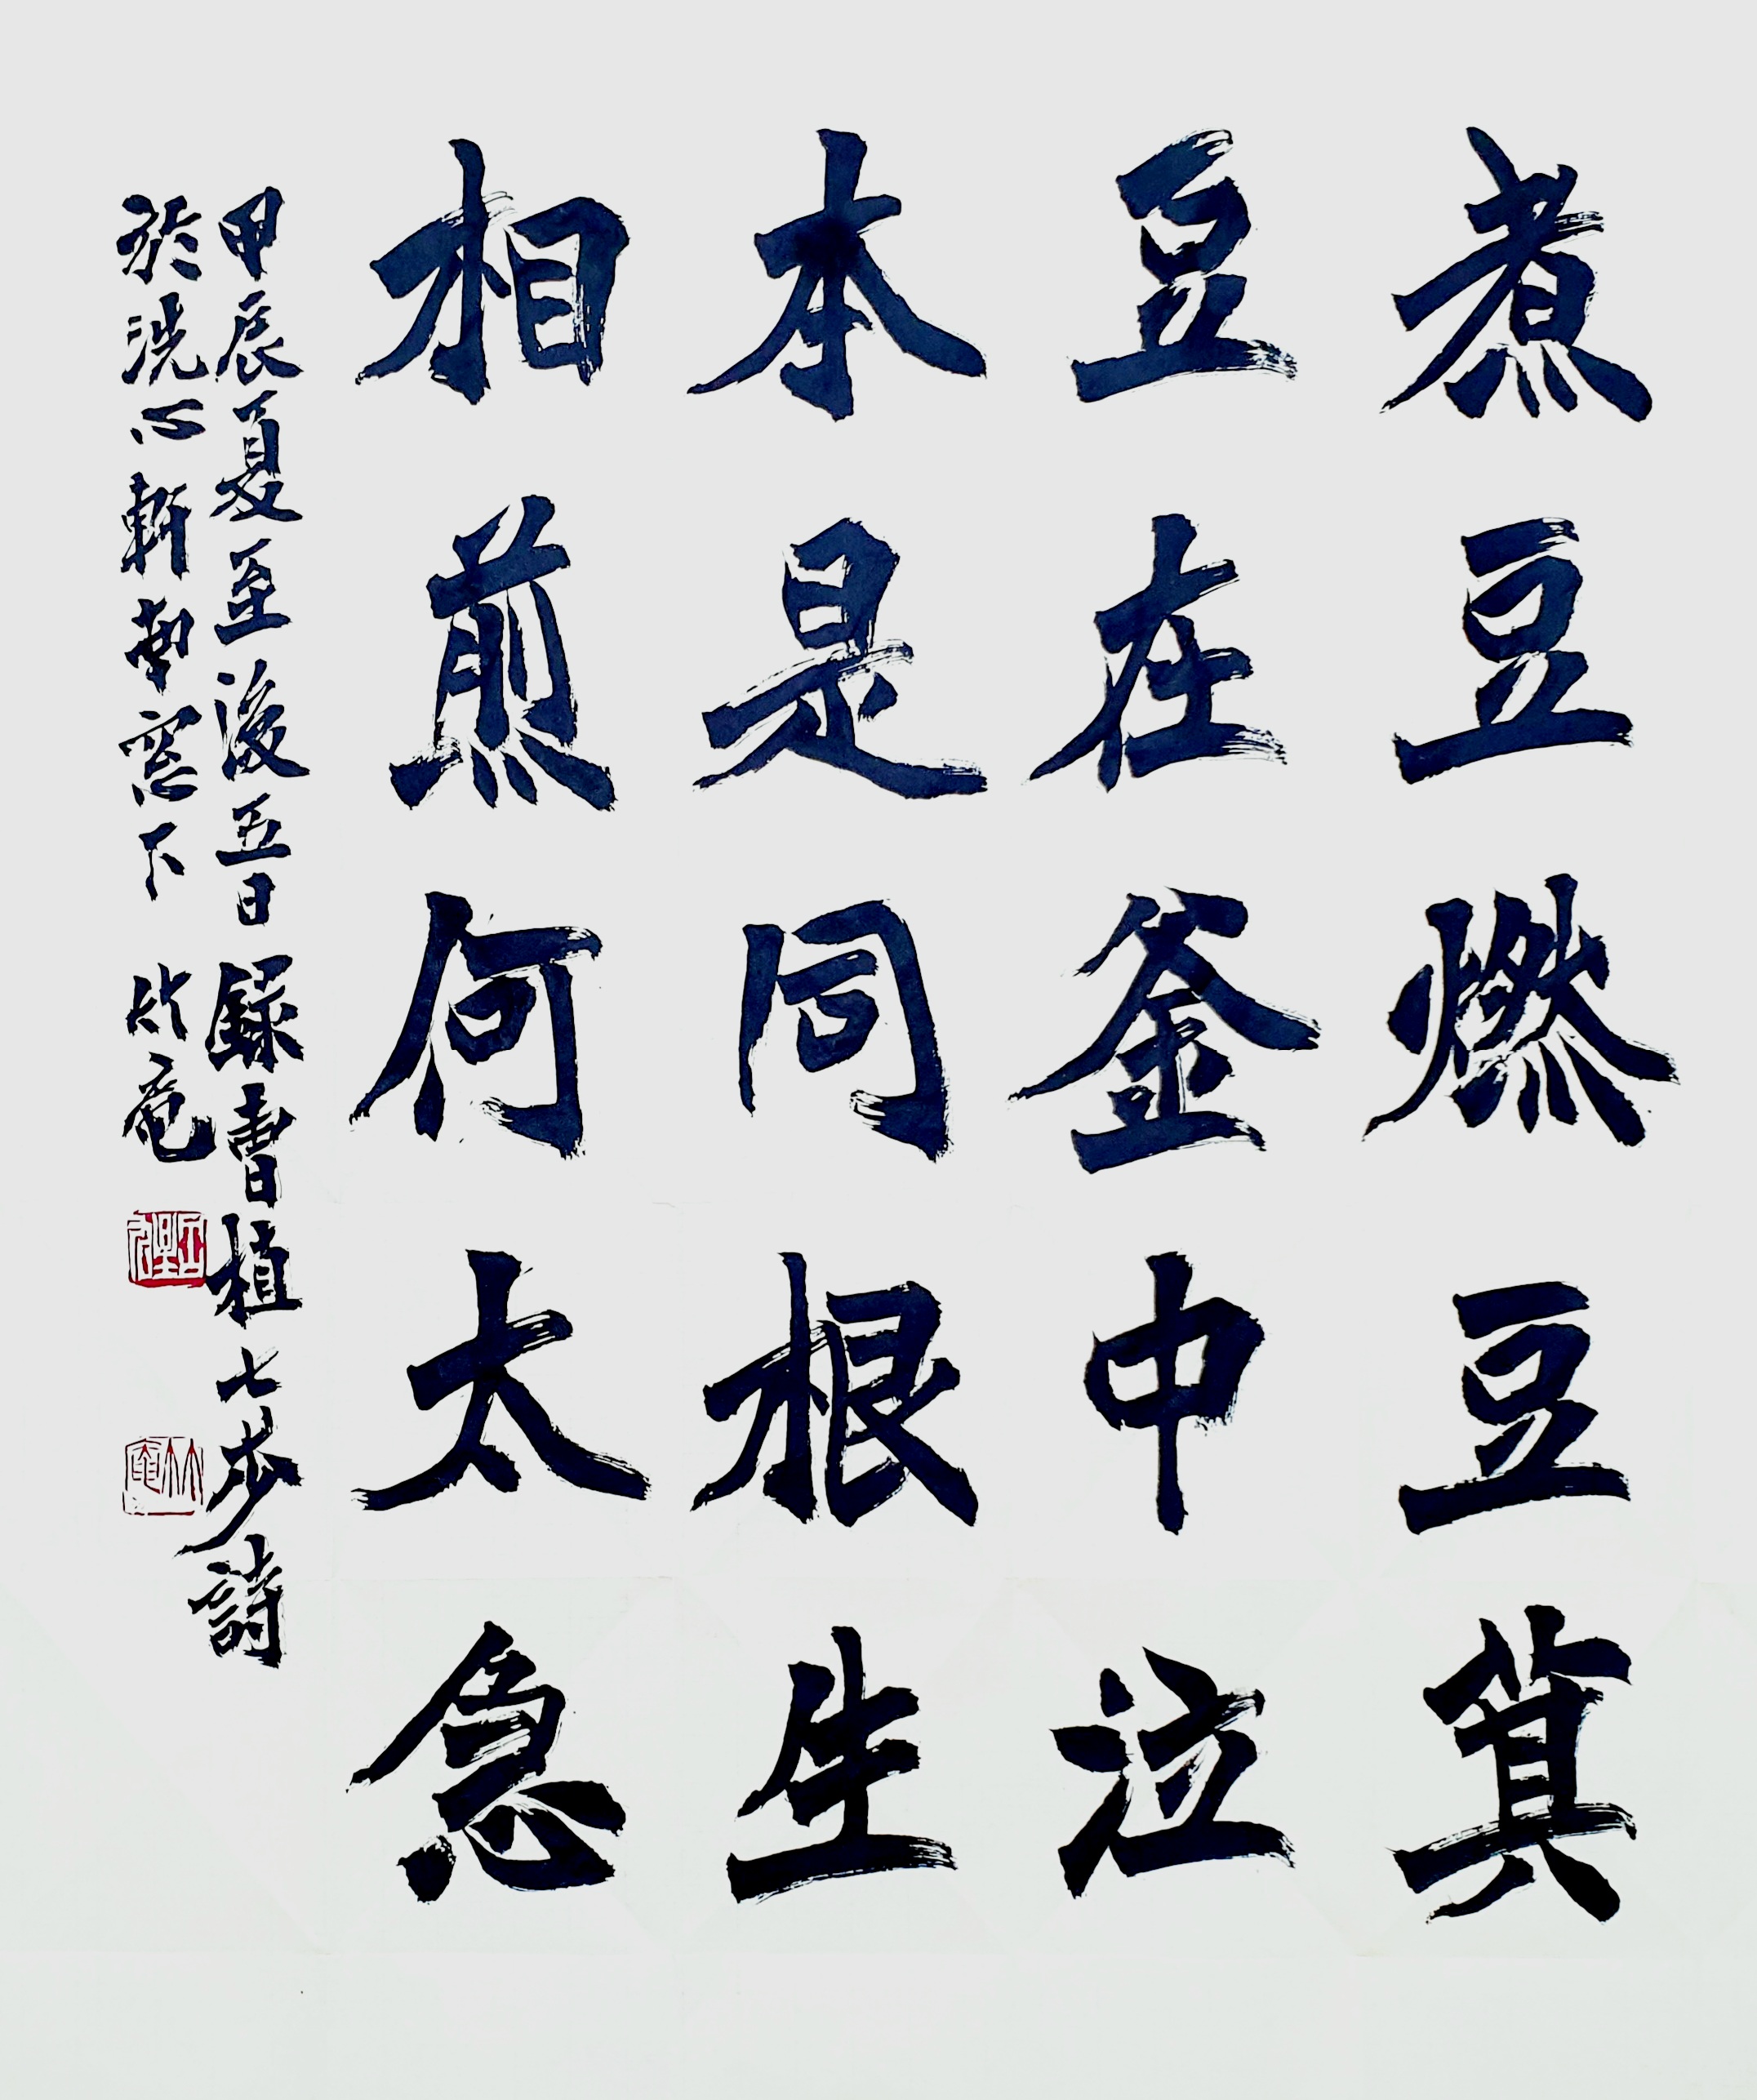 煮豆燃豆萁
豆在釜中泣
本是同根生
相煎何太急
甲辰夏至後五日錄曹植七步詩
於洗心軒南窓下